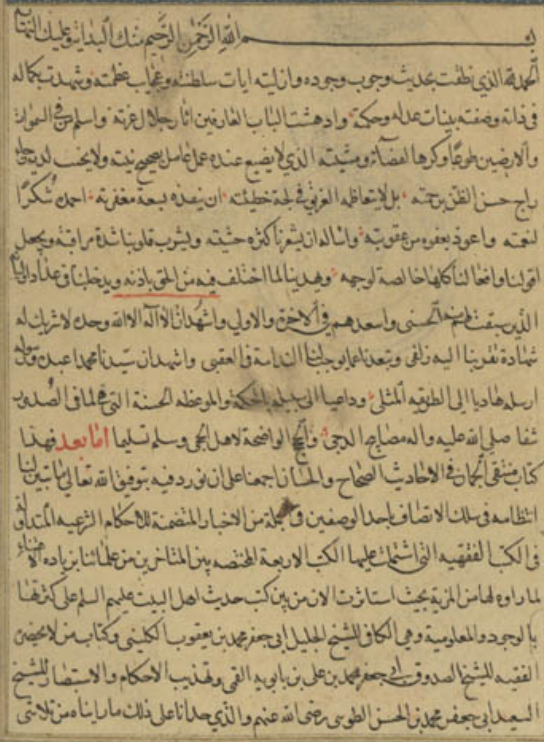 بسم الله الرحمن الرحيم منك البداية وعليك التمام
الحمد لله الذي نطقت بحديث وجوب وجوده وازليته ايات سلطنته وعجايب عظمته وشهدت بكماله
في ذاته وصفته بينات عدله وحكمته وادهشت الباب العارفين اثار جلال عزته واسلم من في السموات
والارضين طوعا وكرها لقضائه ومشيته الذي لا يضيع عنده عمل عامل يصحح نيته ولا يخيب لديه رجاء
راج حسن الظن برحمته بل لا يتعاظمه الغريق في لجة خطيئته ان ينقذه بسعة مغفرته احمده شكرا
لنعمته واعوذ بعفوه من عقوبته واساله ان يشعرنا كثرة خشيته ويشرب قلوبنا شدة مراقبته ويجعل
اقوالنا وافعالنا كلها خالصة لوجهه ويهدينا لما اختلف فيه من الحق باذنه ويدخلنا في عداد
الذين سبقت لهم منه الحسنى واسعدهم في الاخرة والاولى واشهد ان لا اله الا الله وحده لا شريك له
شهادة تقربنا اليه زلفى وتبعدنا عما يوجب لنا الندامة في العقبى واشهد ان سيدنا محمدا عبده ورسوله
ارسله هاديا الى الطريقة المثلى وداعيا الى سبيله بالحكمة والموعظة الحسنة التي هي لما في الصدور
شفا صلى الله عليه واله مصابيح الدجى والحجج الواضحة لاهل الحجى وسلم تسليما اما بعد فهذا
كتاب منتقى الجمان في الاحاديث الصحاح والحسان اجمعنا على ان نورد فيه بتوفيق الله تعالى ما تبين لنا
انتظامه في سلك الاتصاف باحد الوصفين في الجملة من الاخبار المتضمنة للاحكام الشرعية المتداولة
في الكتب الفقهية التي اشتملت عليها الكتب الاربعة المختصة بين المتاخرين من علمائنا بزيادة الاعتناء
لما راوه لها من المزية بحيث استاثرت الان من بين كتب حديث اهل البيت عليهم السلم على كثرتها
بالوجود والمعلومية وهي الكافي للشيخ الجليل ابي جعفر محمد بن يعقوب الكليني وكتاب من لا يحضره
الفقيه للشيخ الصدوق ابي جعفر محمد بن علي بن بابويه القمي وتهذيب الاحكام والاستبصار للشيخ
السعيد ابي جعفر محمد بن الحسن الطوسي رضى الله عنهم والذي حدانا على ذلك ما رايناه من تلاشي